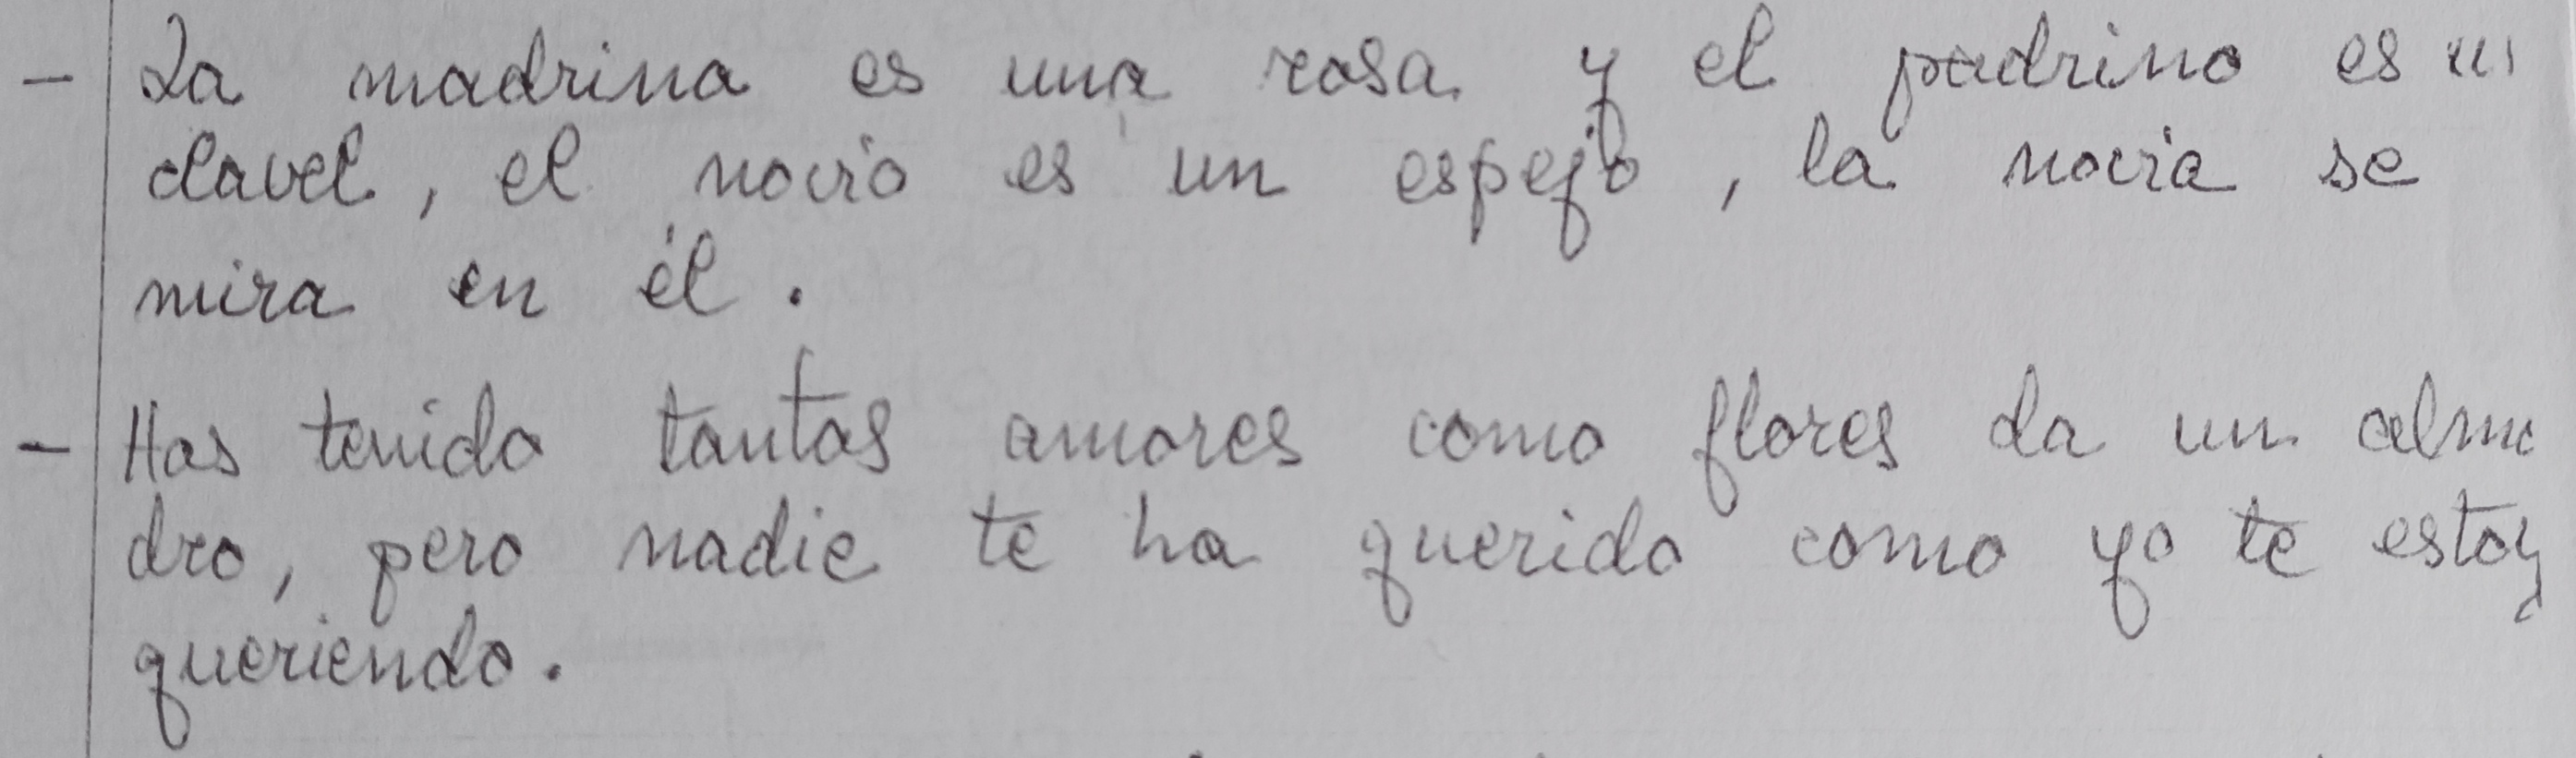 - La madrina es una rosa y el padrino es un
clavel, el novio es un espejo, la novia se
mira en él.
- Has tenido tantos amores como flores da un alme
dro, pero nadie te ha querido como yo te estoy
queriendo.